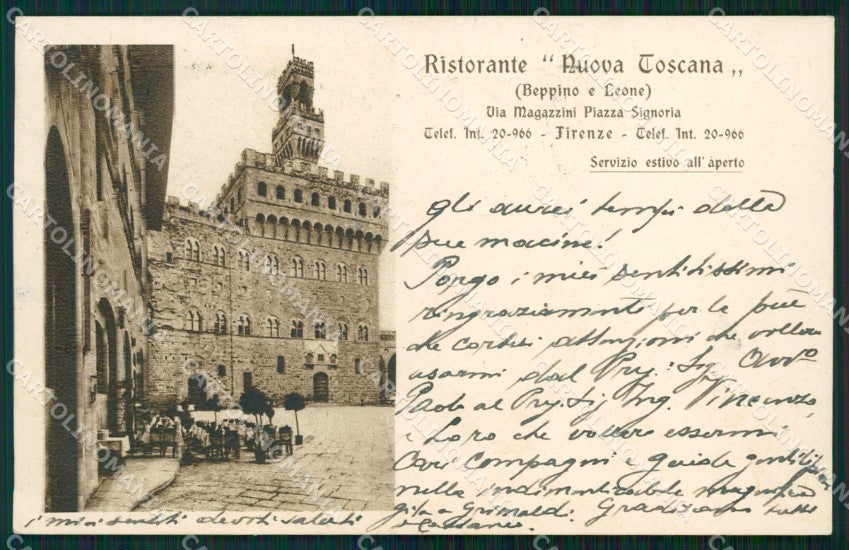 Ristorante "Nuova Toscana"
(Beppino e Leone)
Via Magazzini Piazza Signoria
Telef. Int. 20-966 - Firenze - Telef. Int. 20-966
Servizio estivo all'aperto
gli aurei tempi della
più macine!
Porgo i miei sentitissimi
ringraziamenti per le più
che cortesi attenzioni che vollero
usarmi dal Preg. Sig. Avv.o
Paolo al Preg. Sig. Ing. Vincenzo,
e Loro che vollero essermi
Cari compagni e guide gentili
nella indimenticabile magnifica
gita a Grimaldi. Gradiscano tutti
i miei sentiti devoti saluti
CARTOLINOMANIA